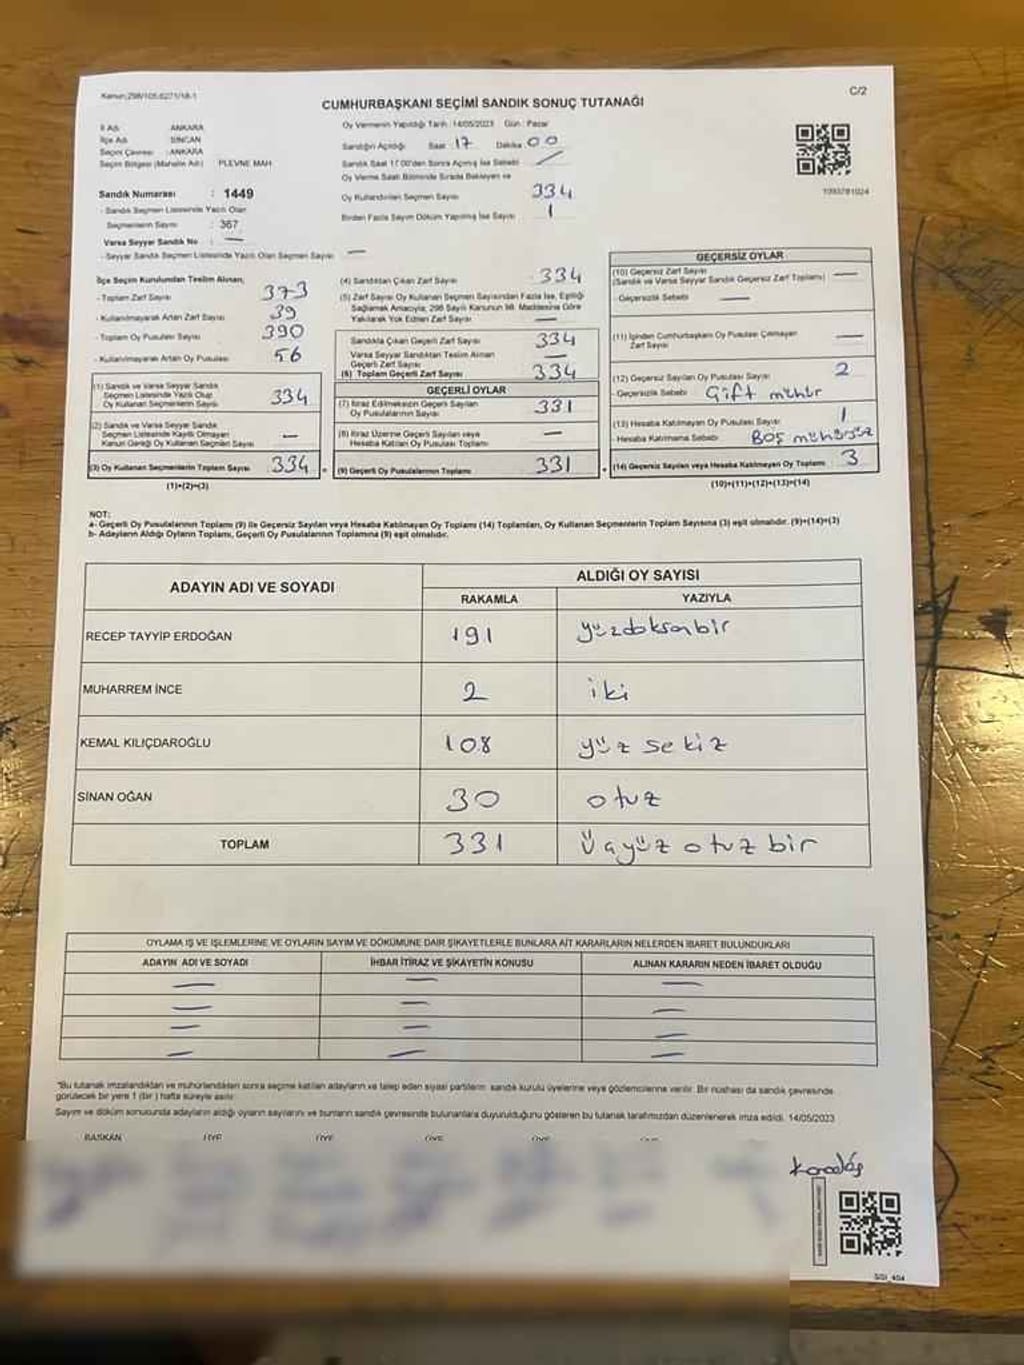 Kanun:298/105,6271/18-1
CUMHURBAŞKANI SEÇİMİ SANDIK SONUÇ TUTANAĞI
C/2
İl Adı : ANKARA
İlçe Adı : SİNCAN
Seçim Çevresi : ANKARA
Seçim Bölgesi (Mahalle Adı) : PLEVNE MAH
Sandık Numarası : 1449
- Sandık Seçmen Listesinde Yazılı Olan
Seçmenlerin Sayısı : 367
Varsa Seyyar Sandık No : —
- Seyyar Sandık Seçmen Listesinde Yazılı Olan Seçmen Sayısı : —
Oy Vermenin Yapıldığı Tarih :14/05/2023 Gün : Pazar
Sandığın Açıldığı Saat : 17 Dakika : 00
Sandık Saat 17:00'den Sonra Açılmış İse Sebebi
Oy Verme Saati Bitiminde Sırada Bekleyen ve
Oy Kullandırılan Seçmen Sayısı 334
Birden Fazla Sayım Döküm Yapılmış İse Sayısı 1
1093781024
İlçe Seçim Kurulundan Teslim Alınan;
- Toplam Zarf Sayısı 373
- Kullanılmayarak Artan Zarf Sayısı 39
- Toplam Oy Pusulası Sayısı 390
- Kullanılmayarak Artan Oy Pusulası 56
(1) Sandık ve Varsa Seyyar Sandık
Seçmen Listesinde Yazılı Olup
Oy Kullanan Seçmenlerin Sayısı 334
(2) Sandık ve Varsa Seyyar Sandık
Seçmen Listesinde Kayıtlı Olmayan
Kanun Gereği Oy Kullanan Seçmen Sayısı —
(3) Oy Kullanan Seçmenlerin Toplam Sayısı 334
(1)+(2)=(3)
(4) Sandıktan Çıkan Zarf Sayısı 334
(5) Zarf Sayısı Oy Kullanan Seçmen Sayısından Fazla İse, Eşitliği
Sağlamak Amacıyla, 298 Sayılı Kanunun 98. Maddesine Göre
Yakılarak Yok Edilen Zarf Sayısı —
Sandıkta Çıkan Geçerli Zarf Sayısı 334
Varsa Seyyar Sandıktan Teslim Alınan
Geçerli Zarf Sayısı —
(6) Toplam Geçerli Zarf Sayısı 334
GEÇERLİ OYLAR
(7) İtiraz Edilmeksizin Geçerli Sayılan
Oy Pusulalarının Sayısı 331
(8) İtiraz Üzerine Geçerli Sayılan veya
Hesaba Katılan Oy Pusulası Toplamı —
(9) Geçerli Oy Pusulalarının Toplamı 331
GEÇERSİZ OYLAR
(10) Geçersiz Zarf Sayısı
(Sandık ve Varsa Seyyar Sandık Geçersiz Zarf Toplamı) —
- Geçersizlik Sebebi : —
(11) İçinden Cumhurbaşkanı Oy Pusulası Çıkmayan
Zarf Sayısı —
(12) Geçersiz Sayılan Oy Pusulası Sayısı 2
- Geçersizlik Sebebi : Çift mühür
(13) Hesaba Katılmayan Oy Pusulası Sayısı 1
Hesaba Katılmama Sebebi : Boş mühürsüz
(14) Geçersiz Sayılan veya Hesaba Katılmayan Oy Toplamı 3
(10)+(11)+(12)+(13)=(14)
NOT:
a- Geçerli Oy Pusulalarının Toplamı (9) ile Geçersiz Sayılan veya Hesaba Katılmayan Oy Toplamı (14) Toplamları, Oy Kullanan Seçmenlerin Toplam Sayısına (3) eşit olmalıdır. (9)+(14)=(3)
b- Adayların Aldığı Oyların Toplamı, Geçerli Oy Pusulalarının Toplamına (9) eşit olmalıdır.
ADAYIN ADI VE SOYADI
ALDIĞI OY SAYISI
RAKAMLA YAZIYLA
RECEP TAYYİP ERDOĞAN 191 yüzdoksanbir
MUHARREM İNCE 2 iki
KEMAL KILIÇDAROĞLU 108 yüz sekiz
SİNAN OĞAN 30 otuz
TOPLAM 331 Üçyüz otuz bir
OYLAMA İŞ VE İŞLEMLERİNE VE OYLARIN SAYIM VE DÖKÜMÜNE DAİR ŞİKAYETLERLE BUNLARA AİT KARARLARIN NELERDEN İBARET BULUNDUKLARI
ADAYIN ADI VE SOYADI İHBAR İTİRAZ VE ŞİKAYETİN KONUSU ALINAN KARARIN NEDEN İBARET OLDUĞU
— — —
— — —
— — —
— — —
"Bu tutanak imzalandıktan ve mühürlendikten sonra seçime katılan adayların ve talep eden siyasi partilerin sandık kurulu üyelerine veya gözlemcilerine verilir. Bir nüshası da sandık çevresinde
görülecek bir yere 1 (bir) hafta süreyle asılır.
Sayım ve döküm sonucunda adayların aldığı oyların sayılarını ve bunların sandık çevresinde bulunanlara duyurulduğunu gösteren bu tutanak tarafımızdan düzenlenerek imza edildi. 14/05/2023
BAŞKAN ÜYE ÜYE ÜYE ÜYE